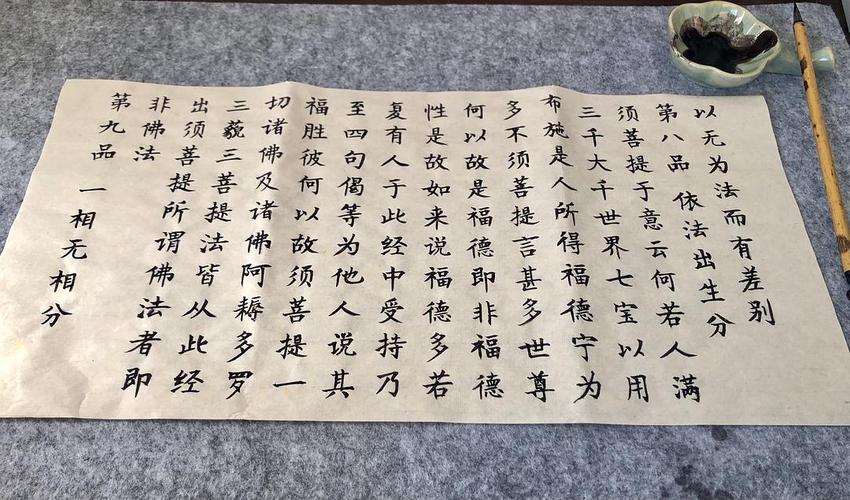 以无为法而有差别
第八品 依法出生分
须菩提于意云何若人满
三千大千世界七宝以用
布施是人所得福德宁为
多不须菩提言甚多世尊
何以故是福德即非福德
性是故如来说福德多若
复有人于此经中受持乃
至四句偈等为他人说其
福胜彼何以故须菩提一
切诸佛及诸佛阿耨多罗
三藐三菩提法皆从此经
出须菩提所谓佛法者即
非佛法
第九品 一相无相分